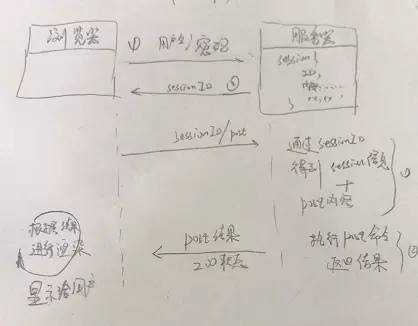 浏览器
服务器
① 用户名/密码
session {
xxx,
} xx,xx
sessionID ②
sessionID/post
通过 sessionID
得到 session信息
+
post内容
①
post结果
200状态
执行post命令
返回结果
②
根据结果
进行渲染
显示给用户